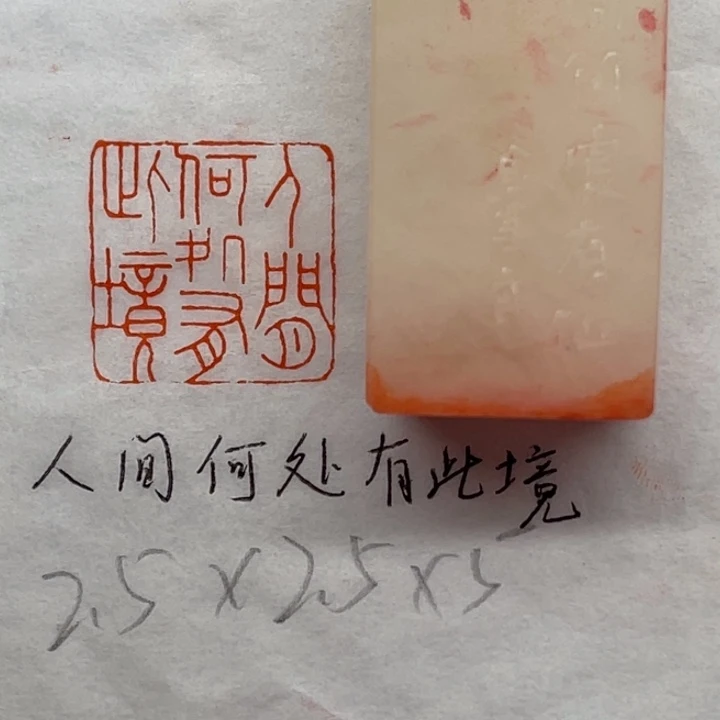 人間何処有此境
人间何处有此境
2.5×2.5×5